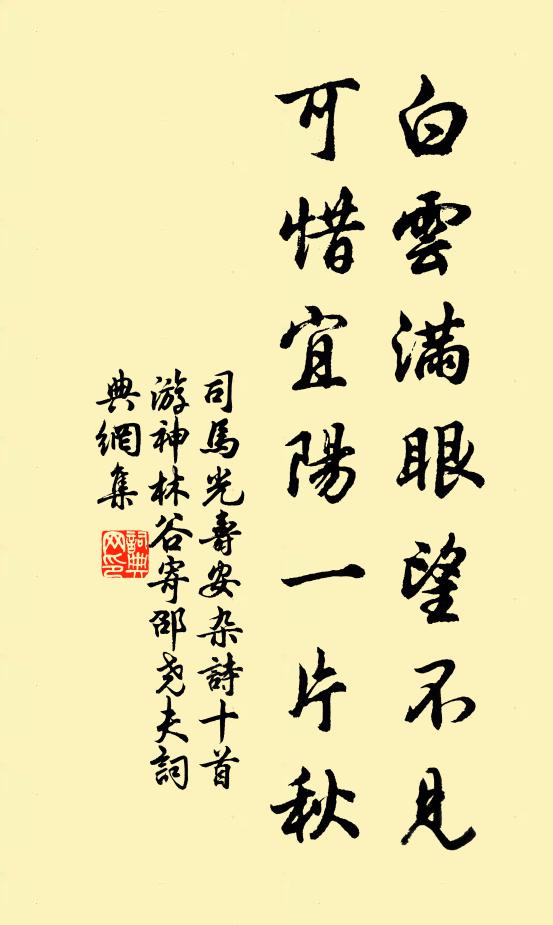 白雲滿眼望不見
可惜宜陽一片秋
司馬光壽安杂詩十首
游神林谷寄邵尧夫詞
典網集
詞典
网印